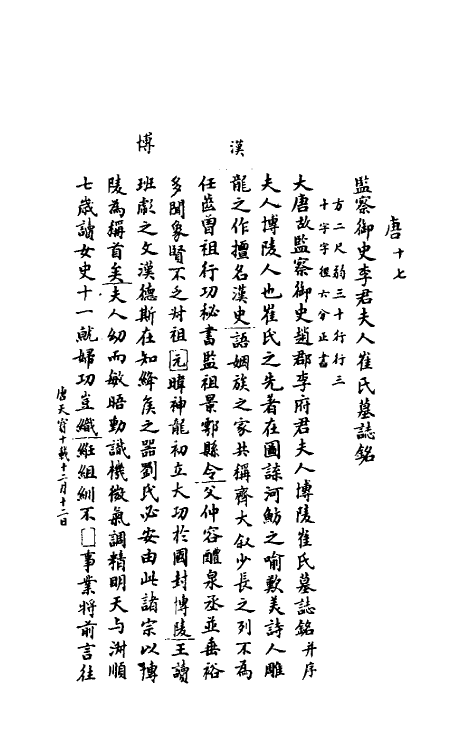 唐十七
監察御史李君夫人崔氏墓誌銘
方二尺弱三十行行三
十字字徑六分正書
大唐故監察御史趙郡李府君夫人博陵崔氏墓誌銘并序
夫人博陵人也崔氏之先著在圖諜河魴之喻歎美詩人雕
漢
龍之作擅名漢史語姻族之家共稱齊大叙少長之列不為
任齒曾祖行功秘書監祖景鄠縣令父仲容醴泉丞並垂裕
多聞象賢不乏封祖元暐神龍初立大功於國封博陵王讀
博
班彪之文漢德斯在知絳侯之器劉氏必安由此諸宗以博
陵為稱首矣夫人幼而敏晤動識機微氣調精明天与淑順
七歲讀女史十一就婦功豈織紝組紃不事業將前言往
唐天寶十載十二月十二日